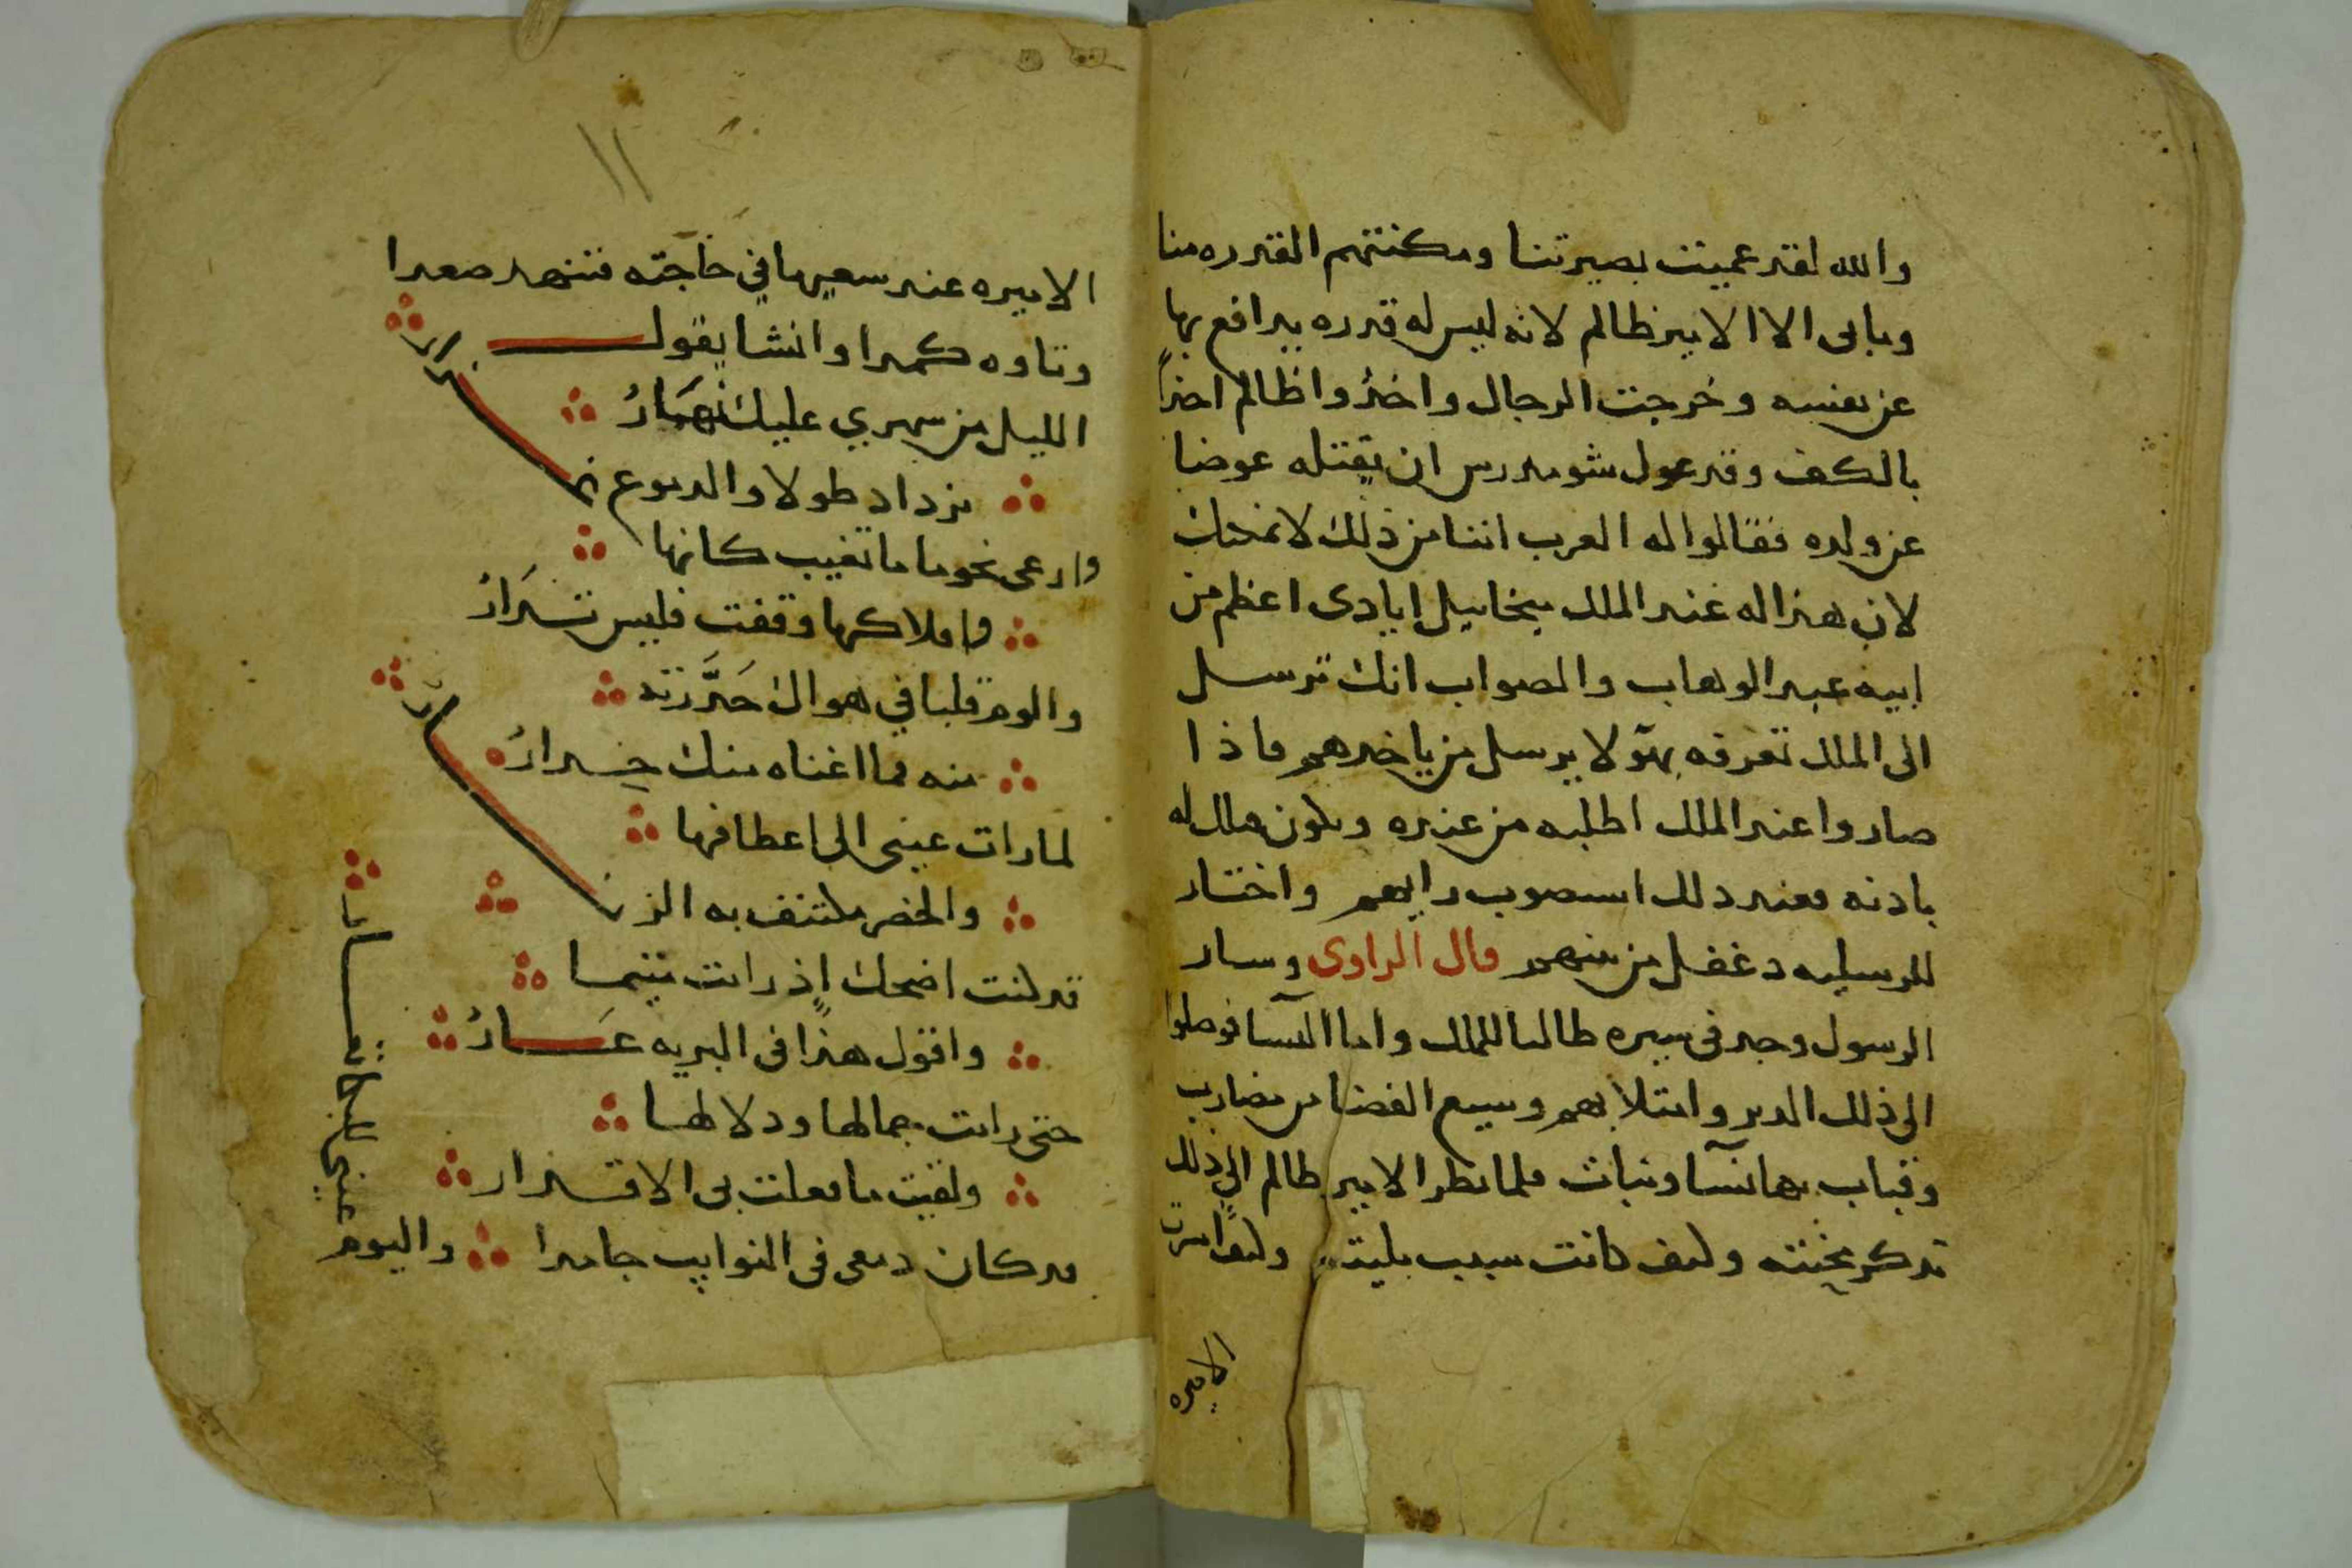 والله لقد عميت بصيرتنا ومكنتهم المقدره منا
وما بقى الا الامير ظالم لانه ليس له قدره يدافع بها
عن نفسه وخرجت الرجال واخذوا ظالم اخذاً
بالكف وقد عول شومدرس ان يقتله عوضا
عن ولده فقالوا له العرب اننا من ذلك لا نمكنك
لان هذا له عند الملك ميخاييل ايادى اعظم من
ابيه عبد الوهاب والصواب انك ترسل
الى الملك تعرفه بهولا يرسل من ياخدهم فاذا
صاروا عند الملك اطلبه من عنده ويكون هلاكه
بادنه فعند دلك استصوب رايهم واختار
للرسليه دغفل من منهم قال الراوى وسار
الرسول وجد فى سيره طالبا للملك واما النسا فوصلوا
الى ذلك الدير وامتلا بهم وسيع الفضا من مضارب
وقباب بها نسا وبنات فلما نظر الامير ظالم الى ذلك
تدكر محنته وكيف كانت سبب بليته وكيف اسرت
الاميره
١١
الاميره عند سعيها في حاجته فتنهد صعدا
وتاوه كمدا وانشا يقول
الليل من سهري عليك نهارُ
يزداد طولا والدموع غزار
وارعى نجوما ما تغيب كانها
واملاكها وقفت فليس تدارُ
والوم قلبا في هواك حذرته
منه فما اغناه منك حدارُ
لما رات عينى الى اعطافها
والخصر ملتف به الزنار
قد كنت اضحك اذ رايت متيما
واقول هذا فى البريه عارُ
حتى رايت جمالها ودلالها
ولقيت ما فعلت بى الاقدار
قد كان دمعى فى النوايب جامدا واليوم